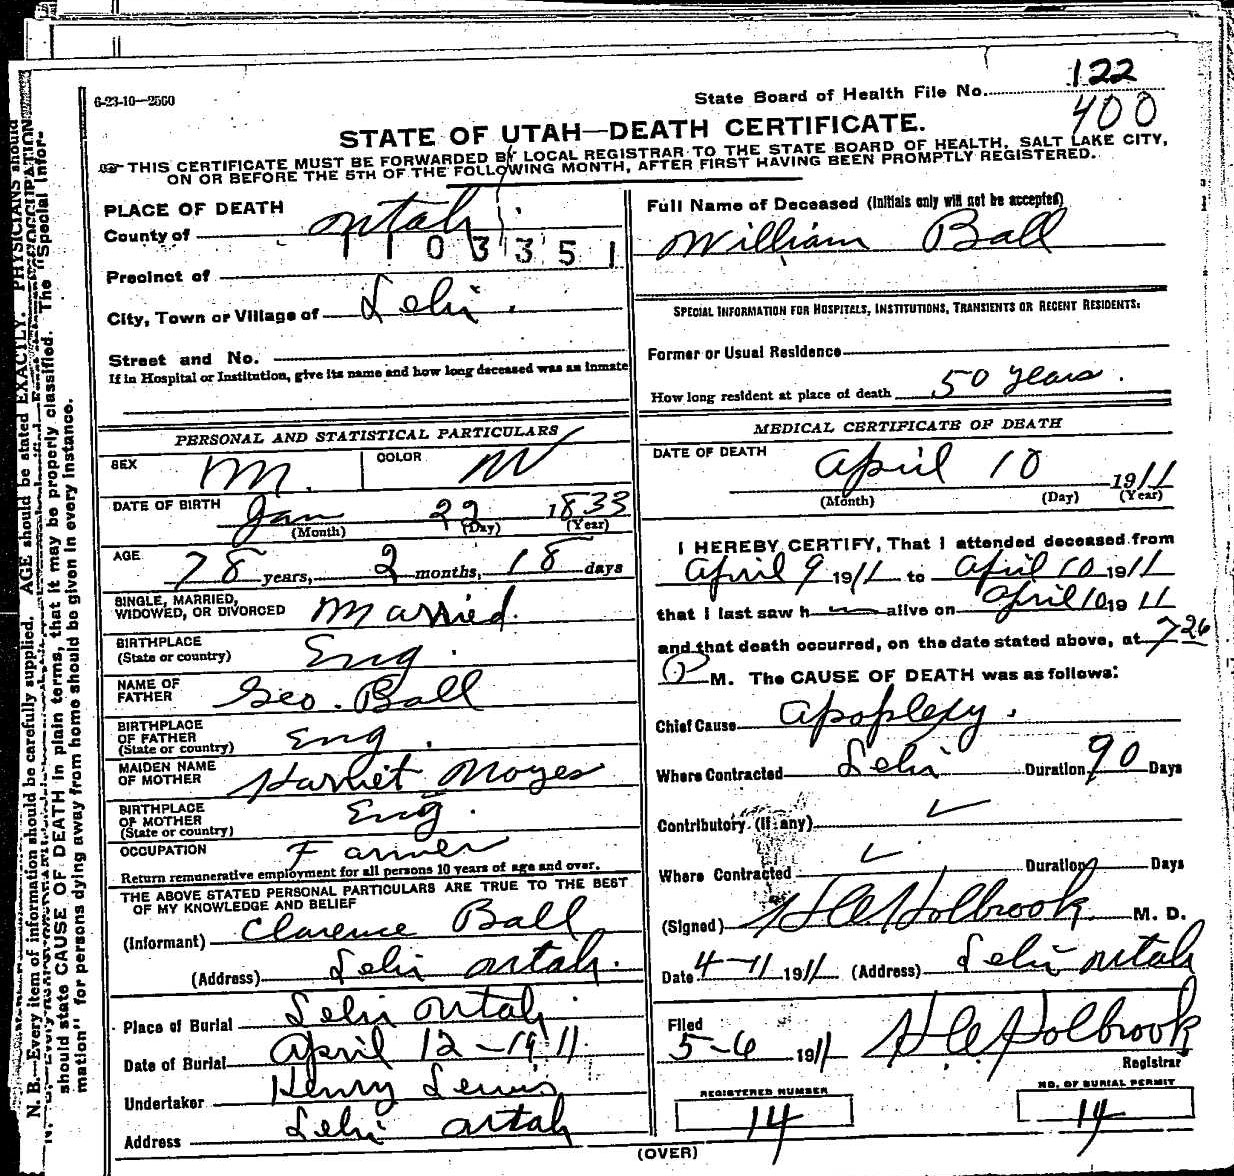 6-23-10—2500
State Board of Health File No. 122
400
STATE OF UTAH—DEATH CERTIFICATE.
THIS CERTIFICATE MUST BE FORWARDED BY LOCAL REGISTRAR TO THE STATE BOARD OF HEALTH, SALT LAKE CITY,
ON OR BEFORE THE 5TH OF THE FOLLOWING MONTH, AFTER FIRST HAVING BEEN PROMPTLY REGISTERED.
PLACE OF DEATH
County of Utah
1103351
Precinct of
City, Town or Village of Lehi.
Street and No.
If in Hospital or Institution, give its name and how long deceased was an inmate
PERSONAL AND STATISTICAL PARTICULARS
SEX M. COLOR W
DATE OF BIRTH Jan 22 1833
(Month) (Day) (Year)
AGE 78 years, 2 months, 18 days
SINGLE, MARRIED,
WIDOWED, OR DIVORCED Married.
BIRTHPLACE
(State or country) Eng.
NAME OF
FATHER Geo. Ball
BIRTHPLACE
OF FATHER
(State or country) Eng.
MAIDEN NAME
OF MOTHER Harriet Noyes
BIRTHPLACE
OF MOTHER
(State or country) Eng.
OCCUPATION Farmer
Return remunerative employment for all persons 10 years of age and over.
THE ABOVE STATED PERSONAL PARTICULARS ARE TRUE TO THE BEST
OF MY KNOWLEDGE AND BELIEF
(Informant) Clarence Ball
(Address) Lehi Utah.
Place of Burial Lehi Utah.
Date of Burial April 12-1911.
Undertaker Henry Lewis
Address Lehi Utah
Full Name of Deceased (Initials only will not be accepted)
William Ball
SPECIAL INFORMATION FOR HOSPITALS, INSTITUTIONS, TRANSIENTS OR RECENT RESIDENTS:
Former or Usual Residence
How long resident at place of death 50 years.
MEDICAL CERTIFICATE OF DEATH
DATE OF DEATH April 10 1911
(Month) (Day) (Year)
I HEREBY CERTIFY, That I attended deceased from
April 9 1911 to April 10 1911
that I last saw him alive on April 10 1911
and that death occurred, on the date stated above, at 7 26
P M. The CAUSE OF DEATH was as follows:
Chief Cause Apoplexy.
Where Contracted Lehi Duration 90 Days
Contributory. (if any)
Where Contracted Duration Days
(Signed) H C Holbrook M. D.
Date 4-11 1911 (Address) Lehi Utah
Filed
5-6 1911 H C Holbrook
Registrar
REGISTERED NUMBER
14
NO. OF BURIAL PERMIT
14
(OVER)
N. B.—Every item of information should be carefully supplied. AGE should be stated EXACTLY. PHYSICIANS should
should state CAUSE OF DEATH in plain terms, that it may be properly classified. The "Special Infor-
mation" for persons dying away from home should be given in every instance.